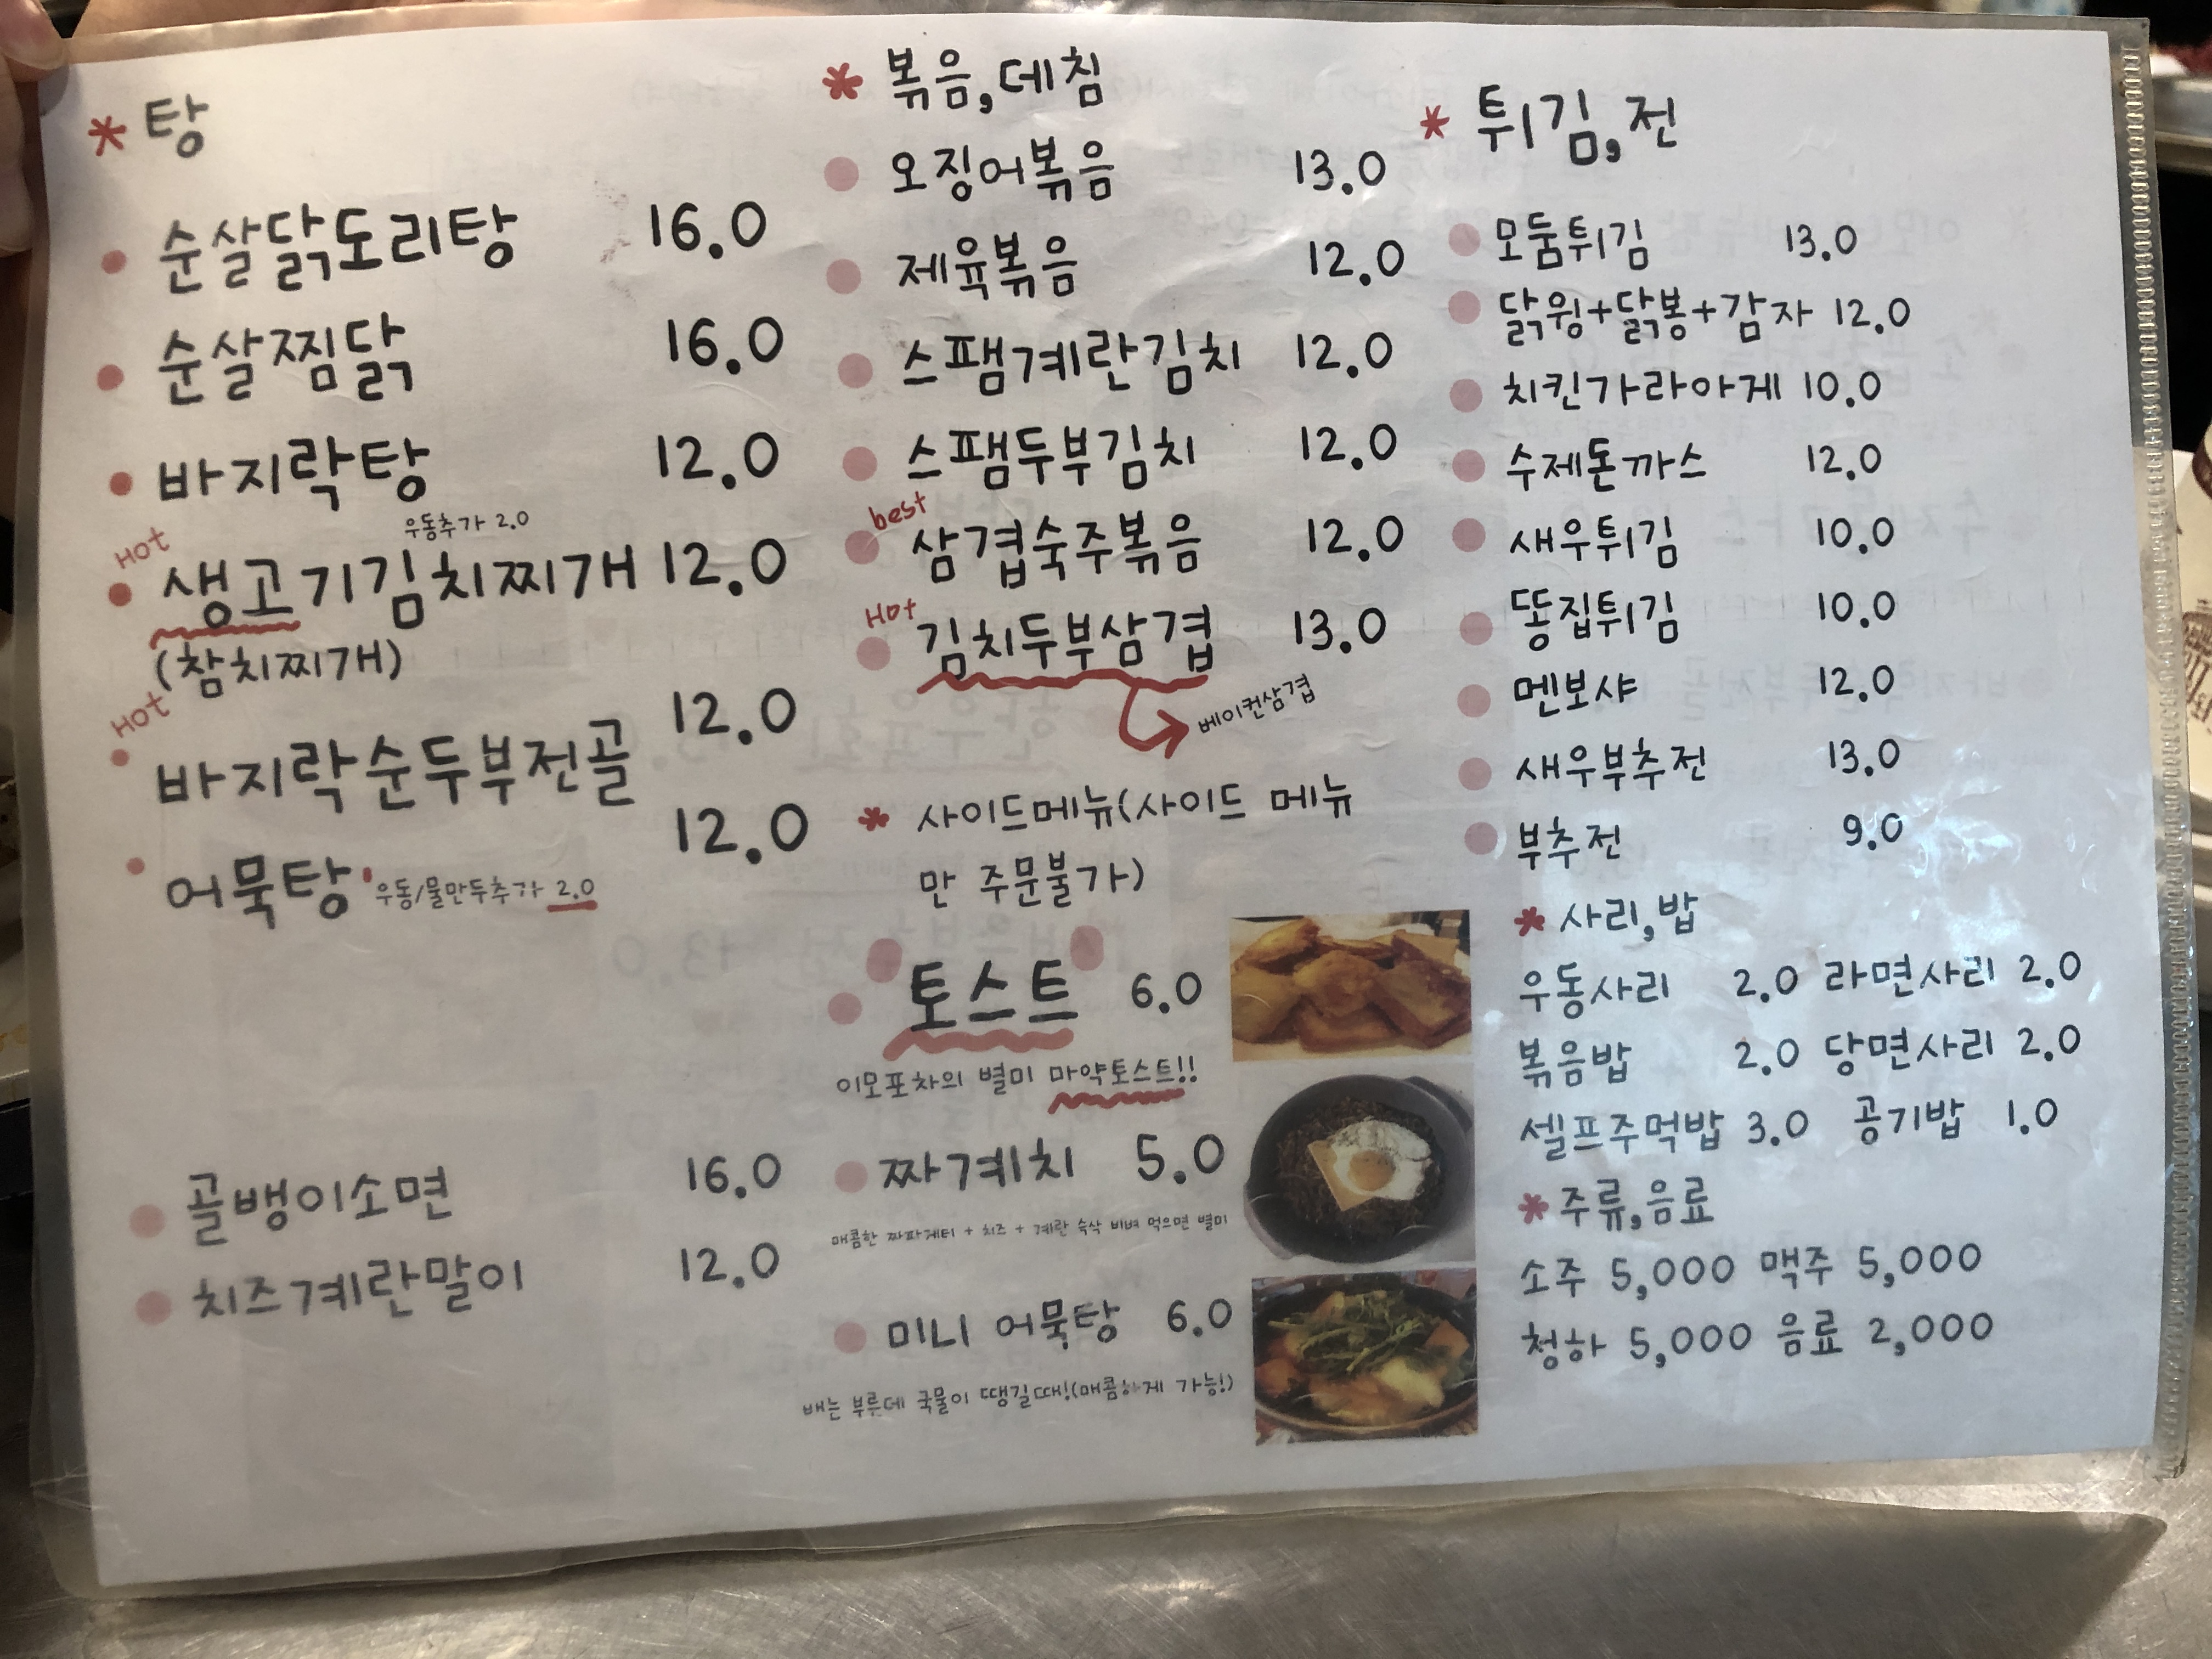 * 탕
순살닭도리탕 16.0
순살찜닭 16.0
바지락탕 12.0
우동추가 2.0
HOT
생고기김치찌개 12.0
(참치찌개)
HOT
바지락순두부전골 12.0
어묵탕 12.0
우동/물만두추가 2.0
골뱅이소면 16.0
치즈계란말이 12.0
* 복음,데침
오징어볶음 13.0
제육볶음 12.0
스팸계란김치 12.0
스팸두부김치 12.0
best
삼겹숙주볶음 12.0
HOT
김치두부삼겹 13.0
베이컨삼겹
* 사이드메뉴(사이드 메뉴
만 주문불가)
토스트 6.0
이모포차의 별미 마약토스트!!
짜계치 5.0
매콤한 짜파게티 + 치즈 + 계란 슥삭 비벼 먹으면 별미
미니 어묵탕 6.0
배는 부른데 국물이 땡길때!(매콤하게 가능!)
* 튀김,전
모둠튀김 13.0
닭윙+닭봉+감자 12.0
치킨가라아게 10.0
수제돈까스 12.0
새우튀김 10.0
똥집튀김 10.0
멘보샤 12.0
새우부추전 13.0
부추전 9.0
* 사리,밥
우동사리 2.0 라면사리 2.0
볶음밥 2.0 당면사리 2.0
셀프주먹밥 3.0 공기밥 1.0
* 주류,음료
소주 5,000 맥주 5,000
청하 5,000 음료 2,000